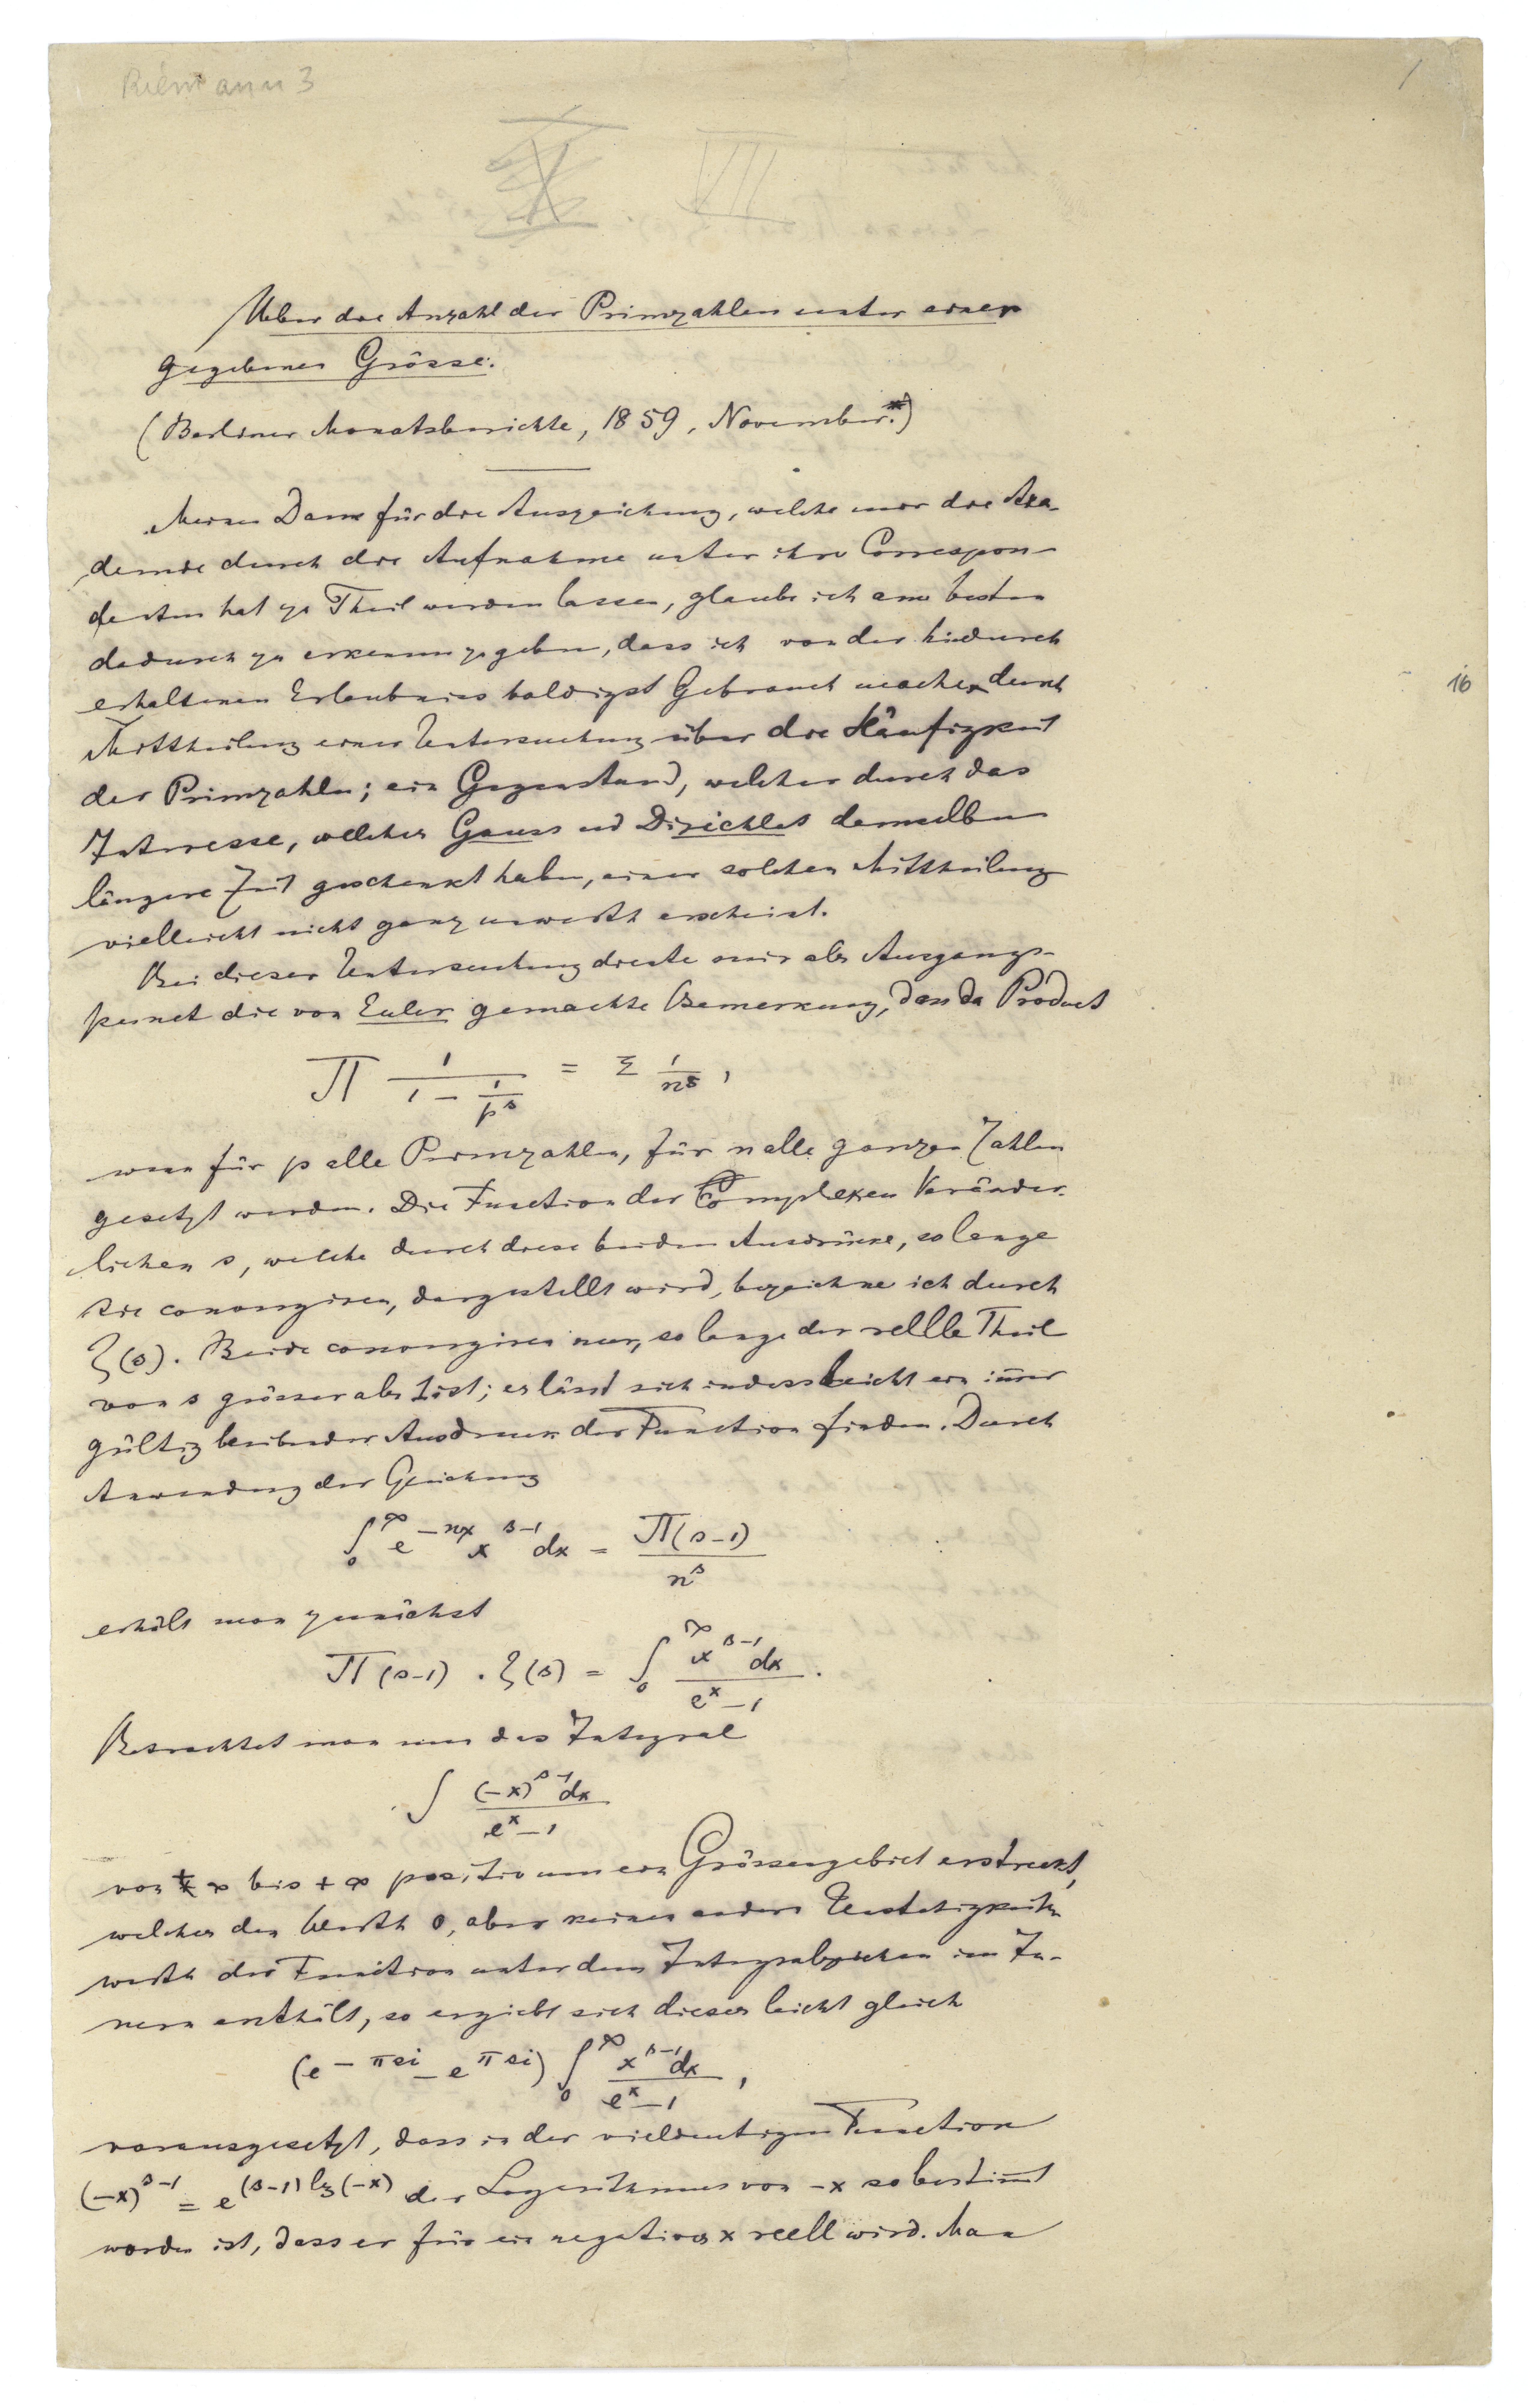 Riemann 3
1
VII
Ueber die Anzahl der Primzahlen unter einer
gegebenen Grösse.
(Berliner Monatsberichte, 1859, November.*)
Meinen Dank für die Auszeichnung, welche mir die Aka-
demie durch die Aufnahme unter ihre Correspon-
denten hat zu Theil werden lassen, glaube ich am besten
dadurch zu erkennen zu geben, dass ich von der hiedurch
erhaltenen Erlaubniss baldigst Gebrauch mache durch
Mittheilung einer Untersuchung über die Häufigkeit
der Primzahlen; ein Gegenstand, welcher durch das
Interesse, welches Gauss und Dirichlet demselben
längere Zeit geschenkt haben, einer solchen Mittheilung
vielleicht nicht ganz unwerth erscheint.
Bei dieser Untersuchung diente mir als Ausgangs-
punct die von Euler gemachte Bemerkung, dass das Product
∏ 1/(1 − 1/p^s) = Σ 1/n^s,
wenn für p alle Primzahlen, für n alle ganzen Zahlen
gesetzt werden. Die Function der Complexen Veränder-
lichen s, welche durch diese beiden Ausdrücke, so lange
sie convergiren, dargestellt wird, bezeichne ich durch
ζ(s). Beide convergiren nur, so lange der reelle Theil
von s grösser als 1 ist; es lässt sich indess leicht ein im̅er
gültig bleibender Ausdruck der Function finden. Durch
Anwendung der Gleichung
∫₀^∞ e^{−nx} x^{s−1} dx = Π(s−1)/n^s
erhält man zunächst
Π(s−1) . ζ(s) = ∫₀^∞ x^{s−1} dx/(e^x − 1).
Betrachtet man nun das Integral
∫ (−x)^{s−1} dx/(e^x − 1)
von +∞ bis +∞ positiv um ein Grössengebiet erstreckt,
welches den Werth 0, aber keinen andern Unstetigkeits
werth der Function unter dem Integralzeichen im In-
nern enthält, so ergiebt sich dieses leicht gleich
(e^{−πsi} − e^{πsi}) ∫₀^∞ x^{s−1} dx/(e^x − 1),
vorausgesetzt, dass in der vieldeutigen Function
(−x)^{s−1} = e^{(s−1) lg(−x)} der Logarithmus von −x so bestim̅t
worden ist, dass er für ein negatives x reell wird. Man
16